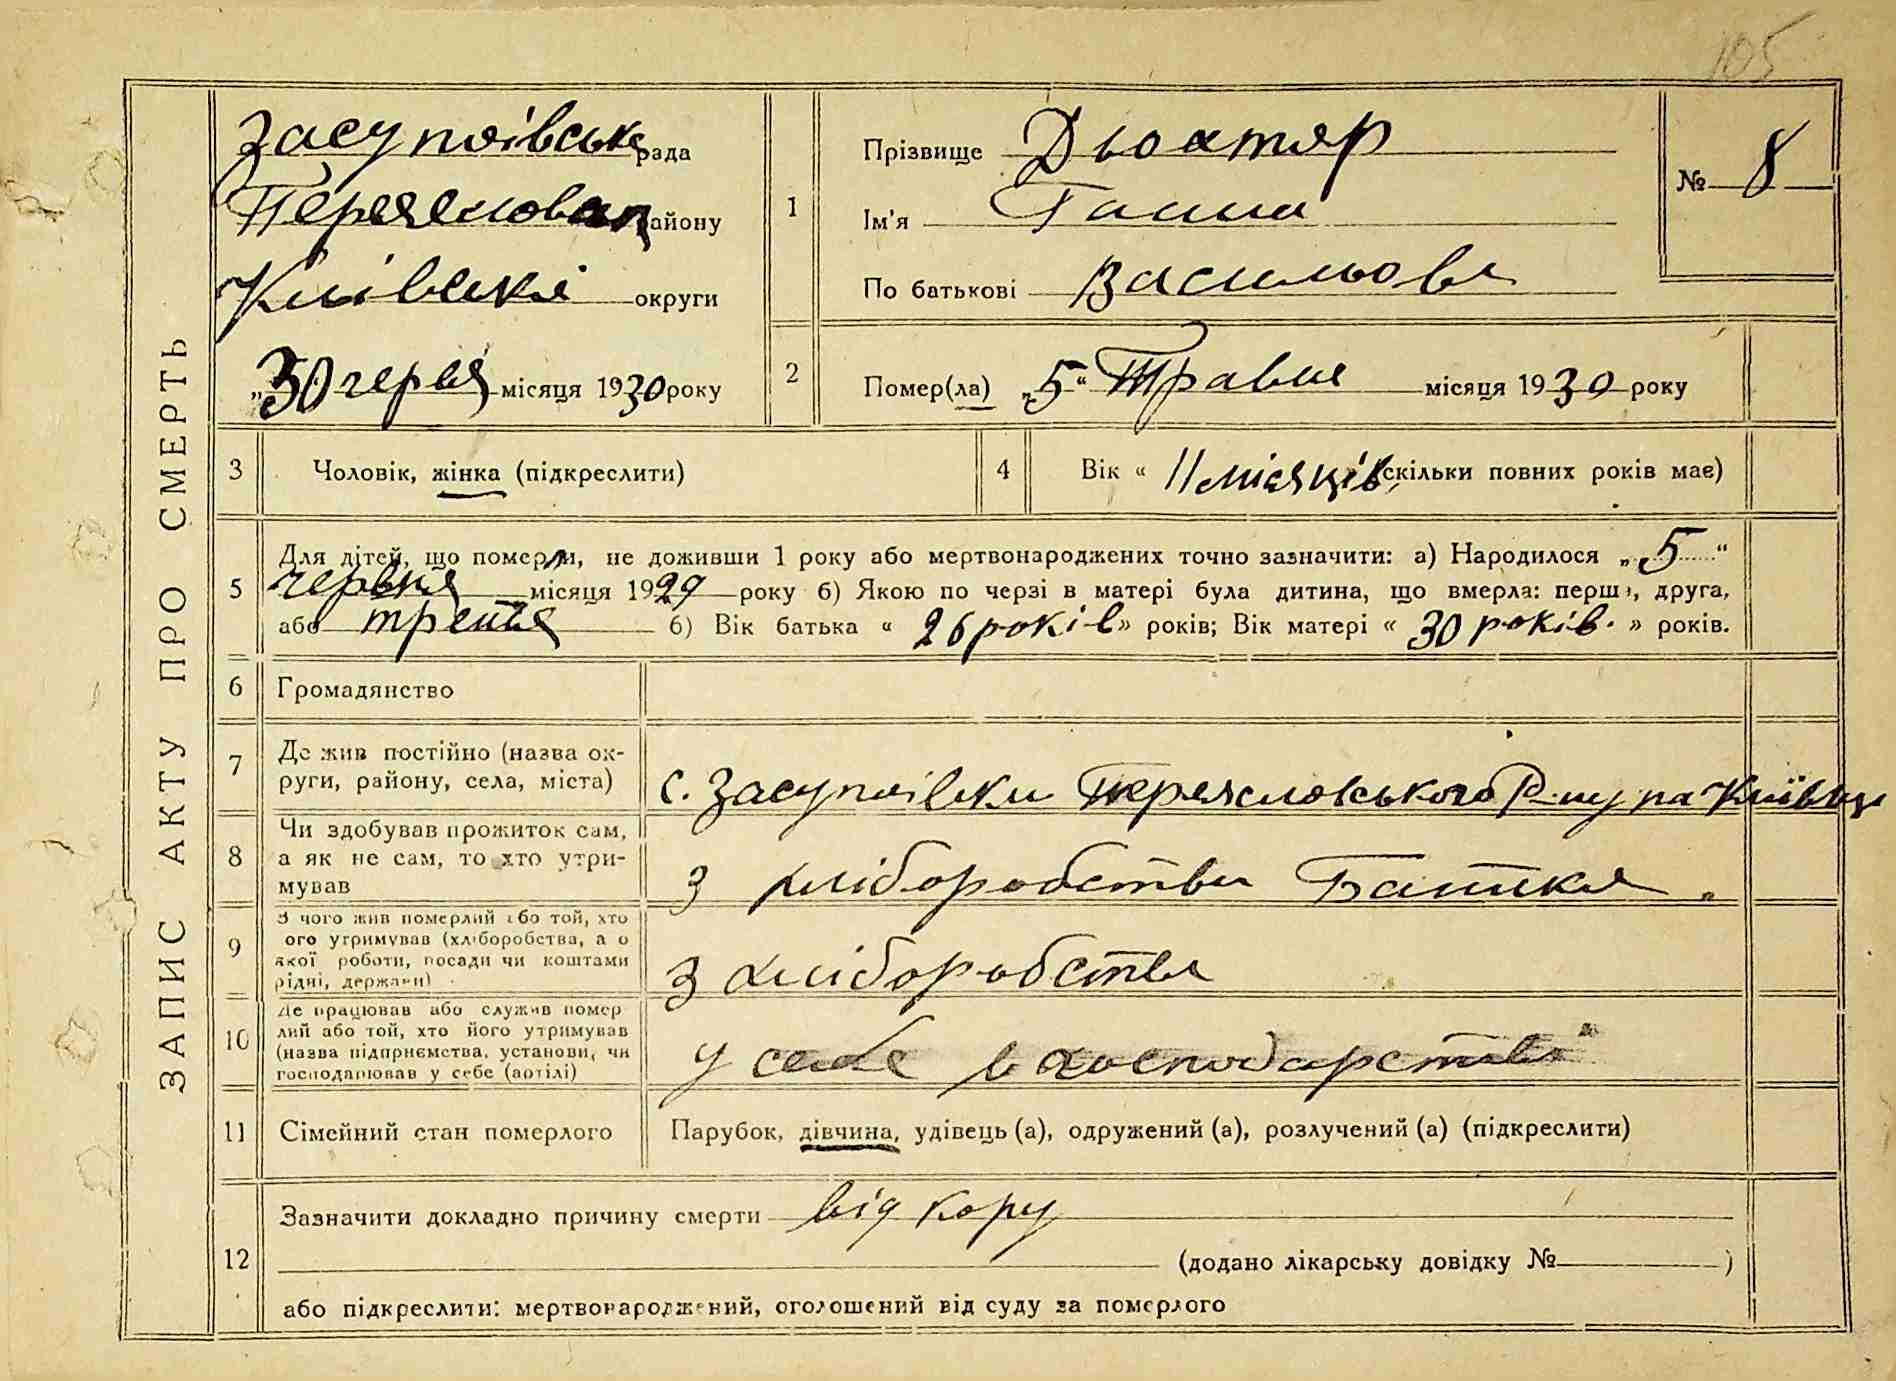 105
ЗАПИС АКТУ ПРО СМЕРТЬ
Засупоївська рада
району
Київські округи
„30 червня місяця 1930 року
1
Прізвище Дьохтяр
Ім'я Ганна
По батькові Васильовна
№ 8
2
Помер(ла) „5“ Травня місяця 1930 року
3 Чоловік, жінка (підкреслити)
4 Вік « 11 місяців скільки повних років має)
5
Для дітей, що померли, не доживши 1 року або мертвонароджених точно зазначити: а) Народилося „5“
червня місяця 1929 року б) Якою по черзі в матері була дитина, що вмерла: перша, друга,
або третья б) Вік батька « 26 років » років; Вік матері « 30 років. » років.
6 Громадянство
7
Де жив постійно (назва ок-
руги, району, села, міста)
с. Засупоївки Переясловського Р-ну на Київщ
8
Чи здобував прожиток сам,
а як не сам, то хто утри-
мував
З хліборобства Батька
9
З чого жив померлий або той, хто
ого утримував (хліборобства, а о
якої роботи, посади чи коштами
рідні, держави)
З хліборобства
10
Де працював або служив помер
лий або той, хто його утримував
(назва підприємства, установи, чи
господарював у себе (артілі)
у себе в господарстві
11 Сімейний стан померлого
Парубок, дівчина, удівець (а), одружений (а), розлучений (а) (підкреслити)
12
Зазначити докладно причину смерти від кору
(додано лікарську довідку № )
або підкреслити: мертвонароджений, оголошений від суду за померлого